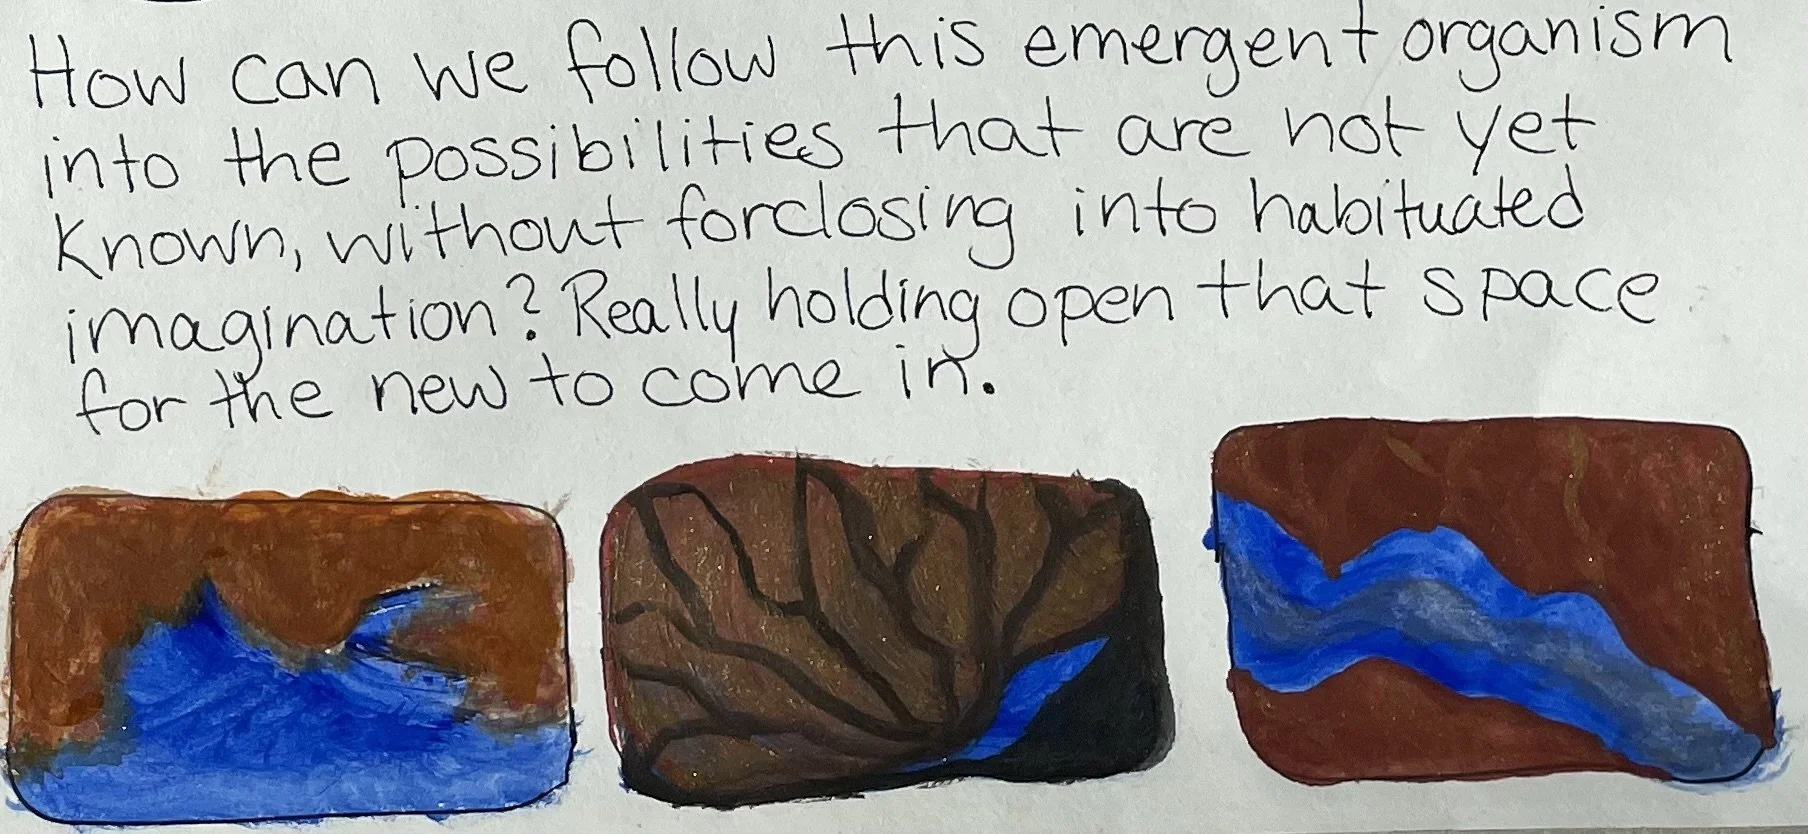 How can we follow this emergent organism
into the possibilities that are not yet
Known, without forclosing into habituated
imagination? Really holding open that space
for the new to come in.